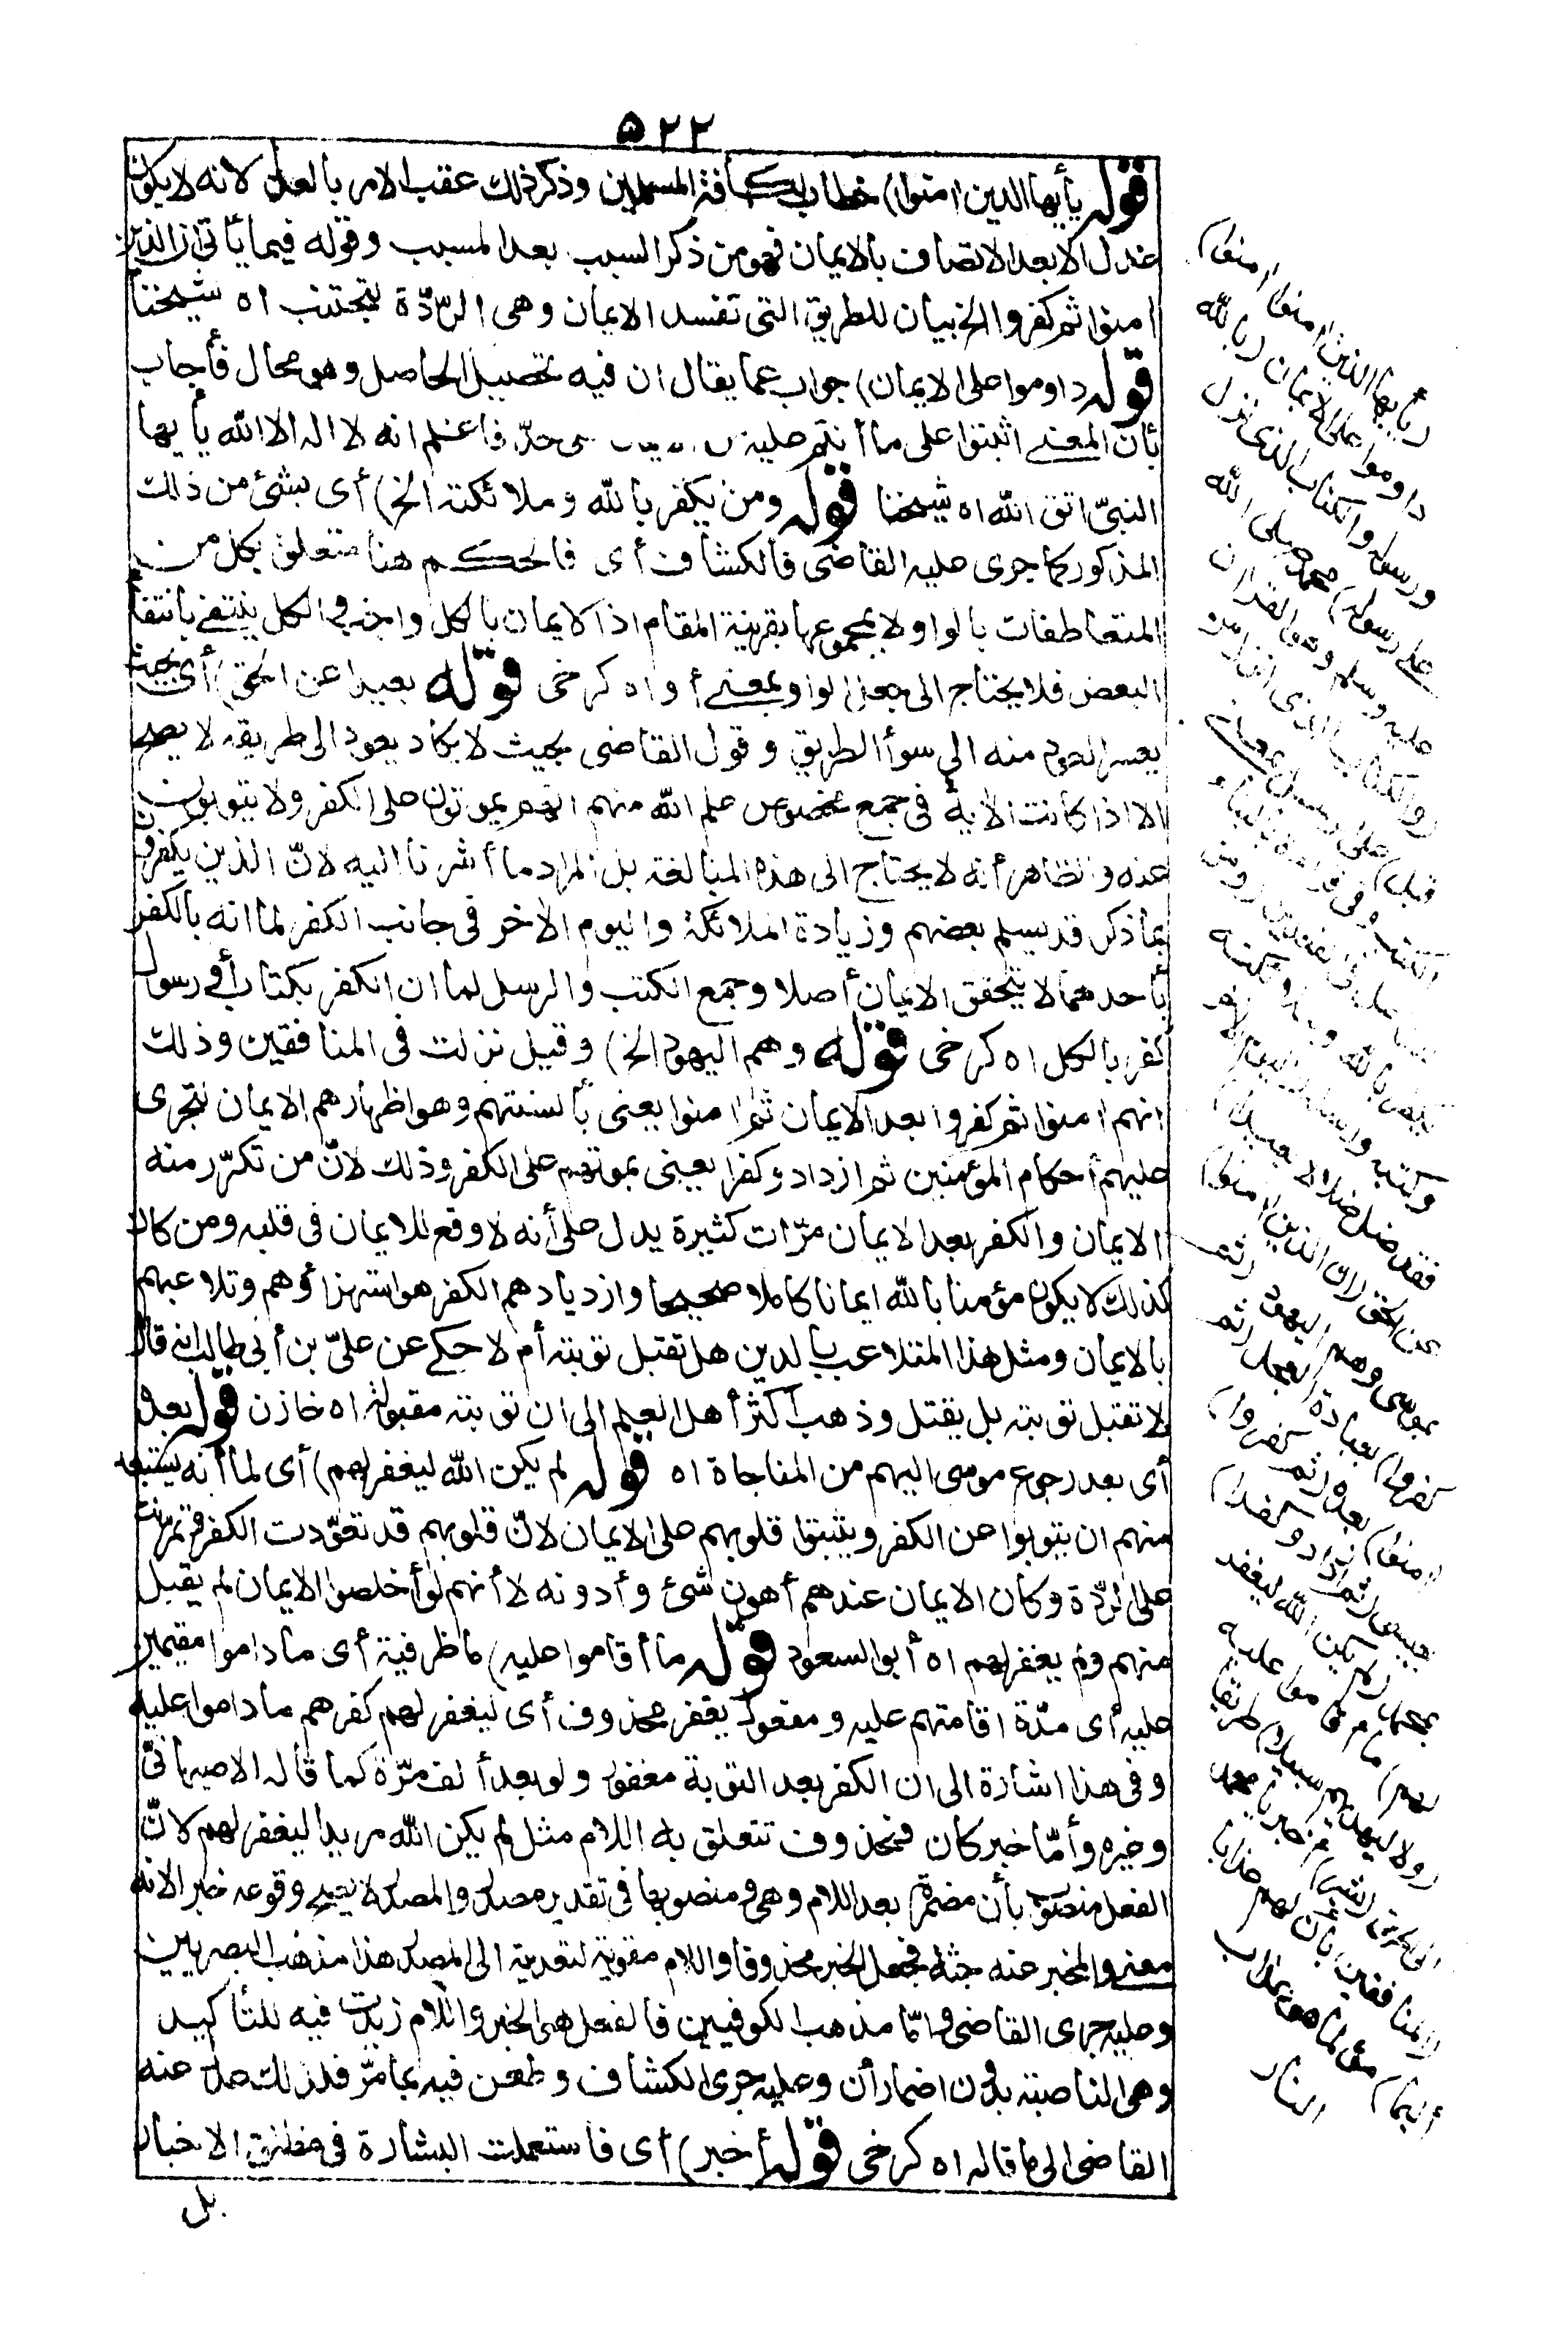 ٥٢٢
قوله يأيها الذين امنوا) خطاب لكافة المسلمين وذكر ذلك عقب الامر بالعدل لانه لا يكون
عدل الا بعد الاتصاف بالايمان فهو من ذكر السبب بعد المسبب وقوله فيما يأتى ان الذين
امنوا ثم كفروا الخ بيان للطريق التى تفسد الايمان وهى الردّة لتجتنب اه شيخنا
قوله داوموا على الايمان) جواب عما يقال ان فيه تحصيل الحاصل وهو محال فأجاب
بأن المعنے اثبتوا على ما أنتم عليه حدّ فاعلم انه لا اله الا الله يأيها
النبىّ اتق الله اه شيخنا قوله ومن يكفر بالله وملائكته الخ) أى بشئ من ذلك
المذكور كما جرى عليه القاضى فالكشاف أى فالحكم هنا متعلق بكل من
المتعاطفات بالواو لا بمجموعها بقرينة المقام اذ الايمان بالكل واجب والكل ينتفے بانتفأ
البعض فلا يحتاج الى جعل الواو بمعنے أو اه كرخى قوله بعيدا عن الحق) أى بحيث
يعسر العود منه الى سوأ الطريق وقول القاضى بحيث لا يكاد يعود الى طريقه لا يصح
الا اذا كانت الاية فى جمع مخصوص علم الله منهم انهم يموتون على الكفر ولا يتوبون
عنه والظاهر أنه لا يحتاج الى هذه المبالغة بل المراد ما أشرنا اليه لانّ الذين يكفرون
بما ذكر قد يسلم بعضهم وزيادة الملائكة واليوم الاخر فى جانب الكفر لما انه بالكفر
بأحدهما لا يتحقق الايمان أصلا وجمع الكتب والرسل لما ان الكفر بكتاب أو رسول
كفر بالكل اه كرخى قوله وهم اليهود الخ) وقيل نزلت فى المنافقين وذلك
انهم امنوا ثم كفروا بعد الايمان ثم امنوا يعنى بألسنتهم وهو اظهارهم الايمان لتجرى
عليهم أحكام المؤمنين ثم ازدادوا كفرا يعنى بموتهم على الكفر وذلك لانّ من تكرّر منه
الايمان والكفر بعد الايمان مرّات كثيرة يدل على أنه لا وقع للايمان فى قلبه ومن كان
كذلك لا يكون مؤمنا بالله ايمانا كاملا صحيحا وازديادهم الكفر هو استهزاؤهم وتلاعبهم
بالايمان ومثل هذا المتلاعب بالدين هل تقبل توبته أم لا حكے عن علىّ بن أبى طالب انه قال
لا تقبل توبته بل يقتل وذهب أكثر أهل العلم الى ان توبته مقبولة اه خازن قوله بعده
أى بعد رجوع موسى اليهم من المناجاة اه قوله لم يكن الله ليغفر لهم) أى لما أنه يستبعد
منهم ان يتوبوا عن الكفر ويثبتوا قلوبهم على الايمان لانّ قلوبهم قد تعوّدت الكفر وتمرّنت
على الردّة وكان الايمان عندهم أهون شئ وأدونه لا أنهم لو أخلصوا الايمان لم يقبل
منهم ولم يغفر لهم اه أبو السعود قوله ما أقاموا عليه) ما ظرفية أى ما داموا مقيمين
عليه أى مدّة اقامتهم عليه ومفعول يغفر محذوف أى ليغفر لهم كفرهم ما داموا عليه
وفى هذا اشارة الى ان الكفر بعد التوبة مغفور ولو بعد ألف مرّة كما قاله الاصبهانىّ
وغيره وأمّا خبر كان فمحذوف تتعلق به اللام مثل لم يكن الله مريدا ليغفر لهم لانّ
الفعل منصوب بأن مضمرة بعد اللام وهى ومنصوبها فى تقدير مصدر والمصدر لا يصح وقوعه خبرا لانه
معنے والمخبر عنه جثة فجعل الخبر محذوفا واللام مقوية لتعديته الى المصدر هذا مذهب البصريين
وعليه جرى القاضى وامّا مذهب الكوفيين فالفعل هو الخبر واللام زيدت فيه للتأكيد
وهى الناصبة بدون اضمار أن وعليه جرى الكشاف وطعن فيه بما مرّ فلذلك عدل عنه
القاضى الى ما قاله اه كرخى قوله أخبر) أى فاستعملت البشارة فى مطلق الاخبار
بل
(يأيها الذين امنوا امنوا)
داوموا على الايمان (بالله
ورسوله والكتاب الذى نزل
على رسوله) محمد صلى الله
عليه وسلم وهو القران
(والكتاب الذى انزل من
قبل) على الرسل بمعنے
الكتب وفى قراءة بالبناء
للفاعل فى الفعلين (ومن
يكفر بالله وملائكته
وكتبه ورسله واليوم الاخر
فقد ضل ضلالا بعيدا)
عن الحق (ان الذين امنوا)
بموسى وهم اليهود (ثم
كفروا) بعبادة العجل (ثم
امنوا) بعده (ثم كفروا)
بعيسى (ثم ازدادوا كفرا)
بمحمد (لم يكن الله ليغفر
لهم) ما أقاموا عليه
(ولا ليهديهم سبيلا) طريقا
الى الحق (بشر) أخبر يا محمد
(المنافقين بأن لهم عذابا
أليما) مؤلما هو عذاب
النار